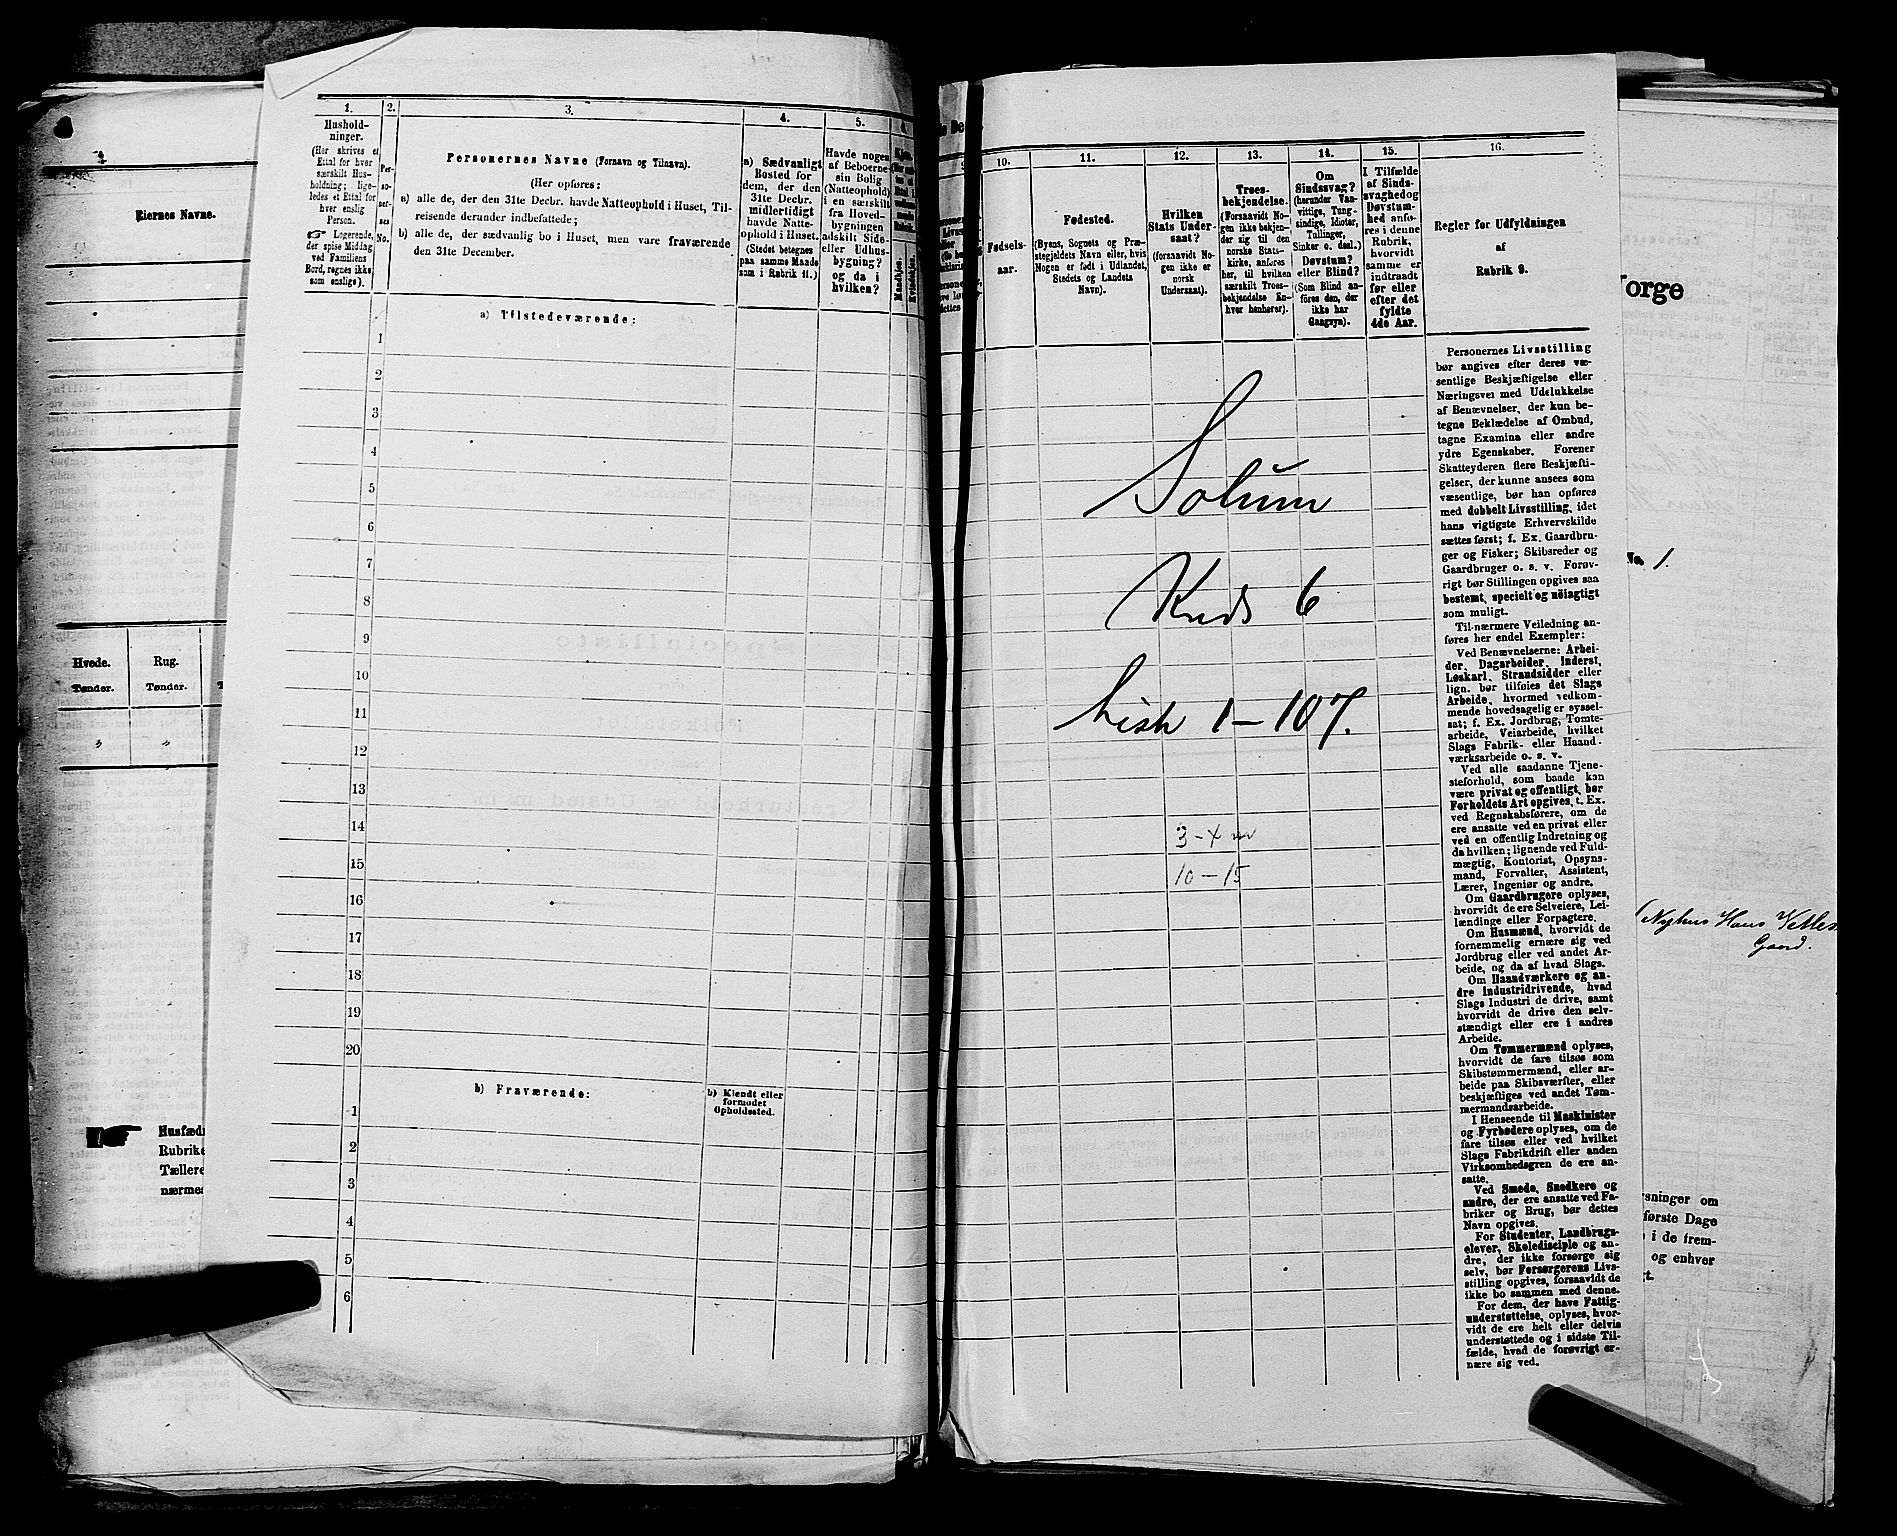 Eiernes Navne.
Hvede.
Rug.
Tønder.
Tønder.
Husfæd
Rubrike
Tællere
nærmes
1.
2.
3.
4.
5.
Hushold-
ninger.
(Her skrives et
Ettal for hver
særskilt Hus-
holdning; lige-
ledes et Ettal for
hver enslig
Person.
Logerende,
der spise Middag
ved Familiens
Bord, regnes ikke
som enslige).
Per-
so-
ner-
nes
No.
Personernes Navne (Fornavn og Tilnavn).
(Her opføres:
a) alle de, der den 31te Decbr. havde Natteophold i Huset, Til-
reisende derunder indbefattede;
b) alle de, der sædvanlig bo i Huset, men vare fraværende
den 31te December.
a) Sædvanligt
Bosted for
dem, der den
31te Decbr.
midlertidigt
havde Natte-
ophold i Huset.
(Stedet betegnes
paa samme Maade
som i Rubrik 11.)
Havde nogen
af Beboerne
sin Bolig
(Natteophold)
i en særskilt
fra Hoved-
bygningen
adskilt Side-
eller Udhus-
bygning?
og da i
hvilken?
Mandkjøn.
Kvindekjøn.
a) Tilstedeværende:
1
2
3
4
5
6
7
8
9
10
11
12
13
14
15
16
17
18
19
20
b) Fraværende:
b) Kjendt eller
formodet
Opholdssted.
1
2
3
4
5
6
10.
11.
12.
13.
14.
15.
16.
Fødsels-
aar.
Fødested.
(Byens, Sognets og Præ-
stegjeldets Navn eller, hvis
Nogen er født i Udlandet,
Stedets og Landets
Navn).
Hvilken
Stats Under-
saat?
(forsaavidt No-
gen ikke er
norsk
Undersaat).
Troes-
bekjendelse.
(Forsaavidt No-
gen ikke bekjen-
der sig til den
norske Stats-
kirke, anføres
her, til hvilken
særskilt Troes-
bekjendelse En-
hver henhører).
Om
Sindssvag?
(herunder Van-
vittige, Tung-
sindige, Idioter,
Tullinger,
Sinker o. desl.)
Døvstum?
eller Blind?
(Som Blind an-
føres den, der
ikke har
Gangsyn).
I Tilfælde
af Sinds-
svaghed og
Døvstum-
hed anfø-
res i denne
Rubrik,
hvorvidt
samme er
indtraadt
før eller
efter det
fyldte
4de Aar.
Regler for Udfyldningen
af
Rubrik 9.
Solum
Krds 6
Liste 1-107.
10-15
Personernes Livsstilling
bør angives efter deres væ-
sentlige Beskjæftigelse eller
Næringsvei med Udelukkelse
af Benævnelser, der kun be-
tegne Beklædelse af Ombud,
tagne Examina eller andre
ydre Egenskaber. Forener
Skatteyderen flere Beskjæfti-
gelser, der kunne ansees som
væsentlige, bør han opføres
med dobbelt Livsstilling, idet
hans vigtigste Erhvervskilde
sættes først; f. Ex. Gaardbru-
ger og Fisker; Skibsreder og
Gaardbruger o. s. v. Forøv-
rigt bør Stillingen opgives saa
bestemt, specielt og nøiagtigt
som muligt.
Til nærmere Veiledning an-
føres her endel Exempler:
Ved Benævnelserne: Arbei-
der, Dagarbeider, Inderst,
Løskarl, Strandsidder eller
lign. bør tilføies det Slags
Arbeide, hvormed vedkom-
mende hovedsagelig er syssel-
sat; f. Ex. Jordbrug, Tomte-
arbeide, Veiarbeide, hvilket
Slags Fabrik- eller Haand-
værksarbeide o. s. v.
Ved alle saadanne Tjene-
steforhold, som baade kan
være privat og offentligt, bør
Forholdets Art opgives, t. Ex.
ved Regnskabsførere, om de
ere ansatte ved en privat eller
ved en offentlig Indretning og
da hvilken; lignende ved Fuld-
mægtig, Kontorist, Opsyns-
mand, Forvalter, Assistent,
Lærer, Ingeniør og andre.
Om Gaardbrugere oplyses,
hvorvidt de ere Selveiere, Lei-
lændinge eller Forpagtere.
Om Husmænd, hvorvidt de
fornemmelig ernære sig ved
Jordbrug eller ved andet Ar-
beide, og da af hvad Slags.
Om Haandværkere og an-
dre Industridrivende, hvad
Slags Industri de drive, samt
hvorvidt de drive den selv-
stændigt eller ere i andres
Arbeide.
Om Tømmermænd oplyses,
hvorvidt de fare tilsøs som
Skibstømmermænd, eller ar-
beide paa Skibsværfter, eller
beskjæftiges ved andet Tøm-
mermandsarbeide.
I Henseende til Maskinister
og Fyrbødere oplyses, om de
fare tilsøs eller ved hvilket
Slags Fabrikdrift eller anden
Virksomhedsgren de ere an-
satte.
Ved Smede, Snedkere og
andre, der ere ansatte ved Fa-
briker og Brug, bør dettes
Navn opgives.
For Studenter, Landbrugs-
elever, Skoledisciple og an-
dre, der ikke forsørge sig
selv, bør Forsørgerens Livs-
stilling opgives, forsaavidt de
ikke bo sammen med denne.
For dem, der have Fattig-
understøttelse, oplyses, hvor-
vidt de ere helt eller delvis
understøttede og i sidste Til-
fælde, hvad de forøvrigt er-
nære sig ved.
orge
No. 1.
Nyhus Hans Vetles
Gaard.
sninger om
første Dage
i de frem-
og enhver